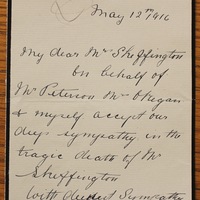 May 12th 1916
My dear Mrs Skeffington
On behalf of
Mr Peterson Mrs
& myself accept our
deep sympathy in the
tragic death of Mr
Skeffington
With deepest Sympathy